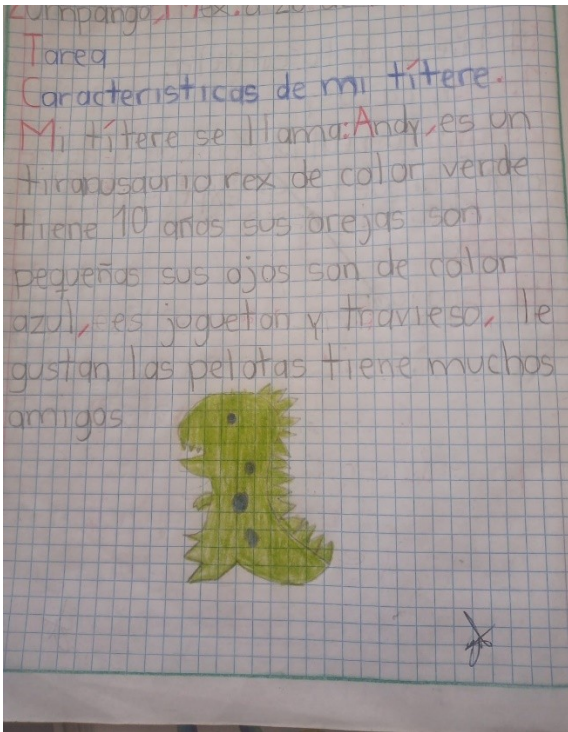 Zumpango,
Tarea
Características de mi títere.
Mi títere se llama: Andy, es un
tiranusaurio rex de color verde
tiene 10 años sus orejas son
pequeñas sus ojos son de color
azul, es jugueton y travieso, le
gustan las pelotas tiene muchos
amigos